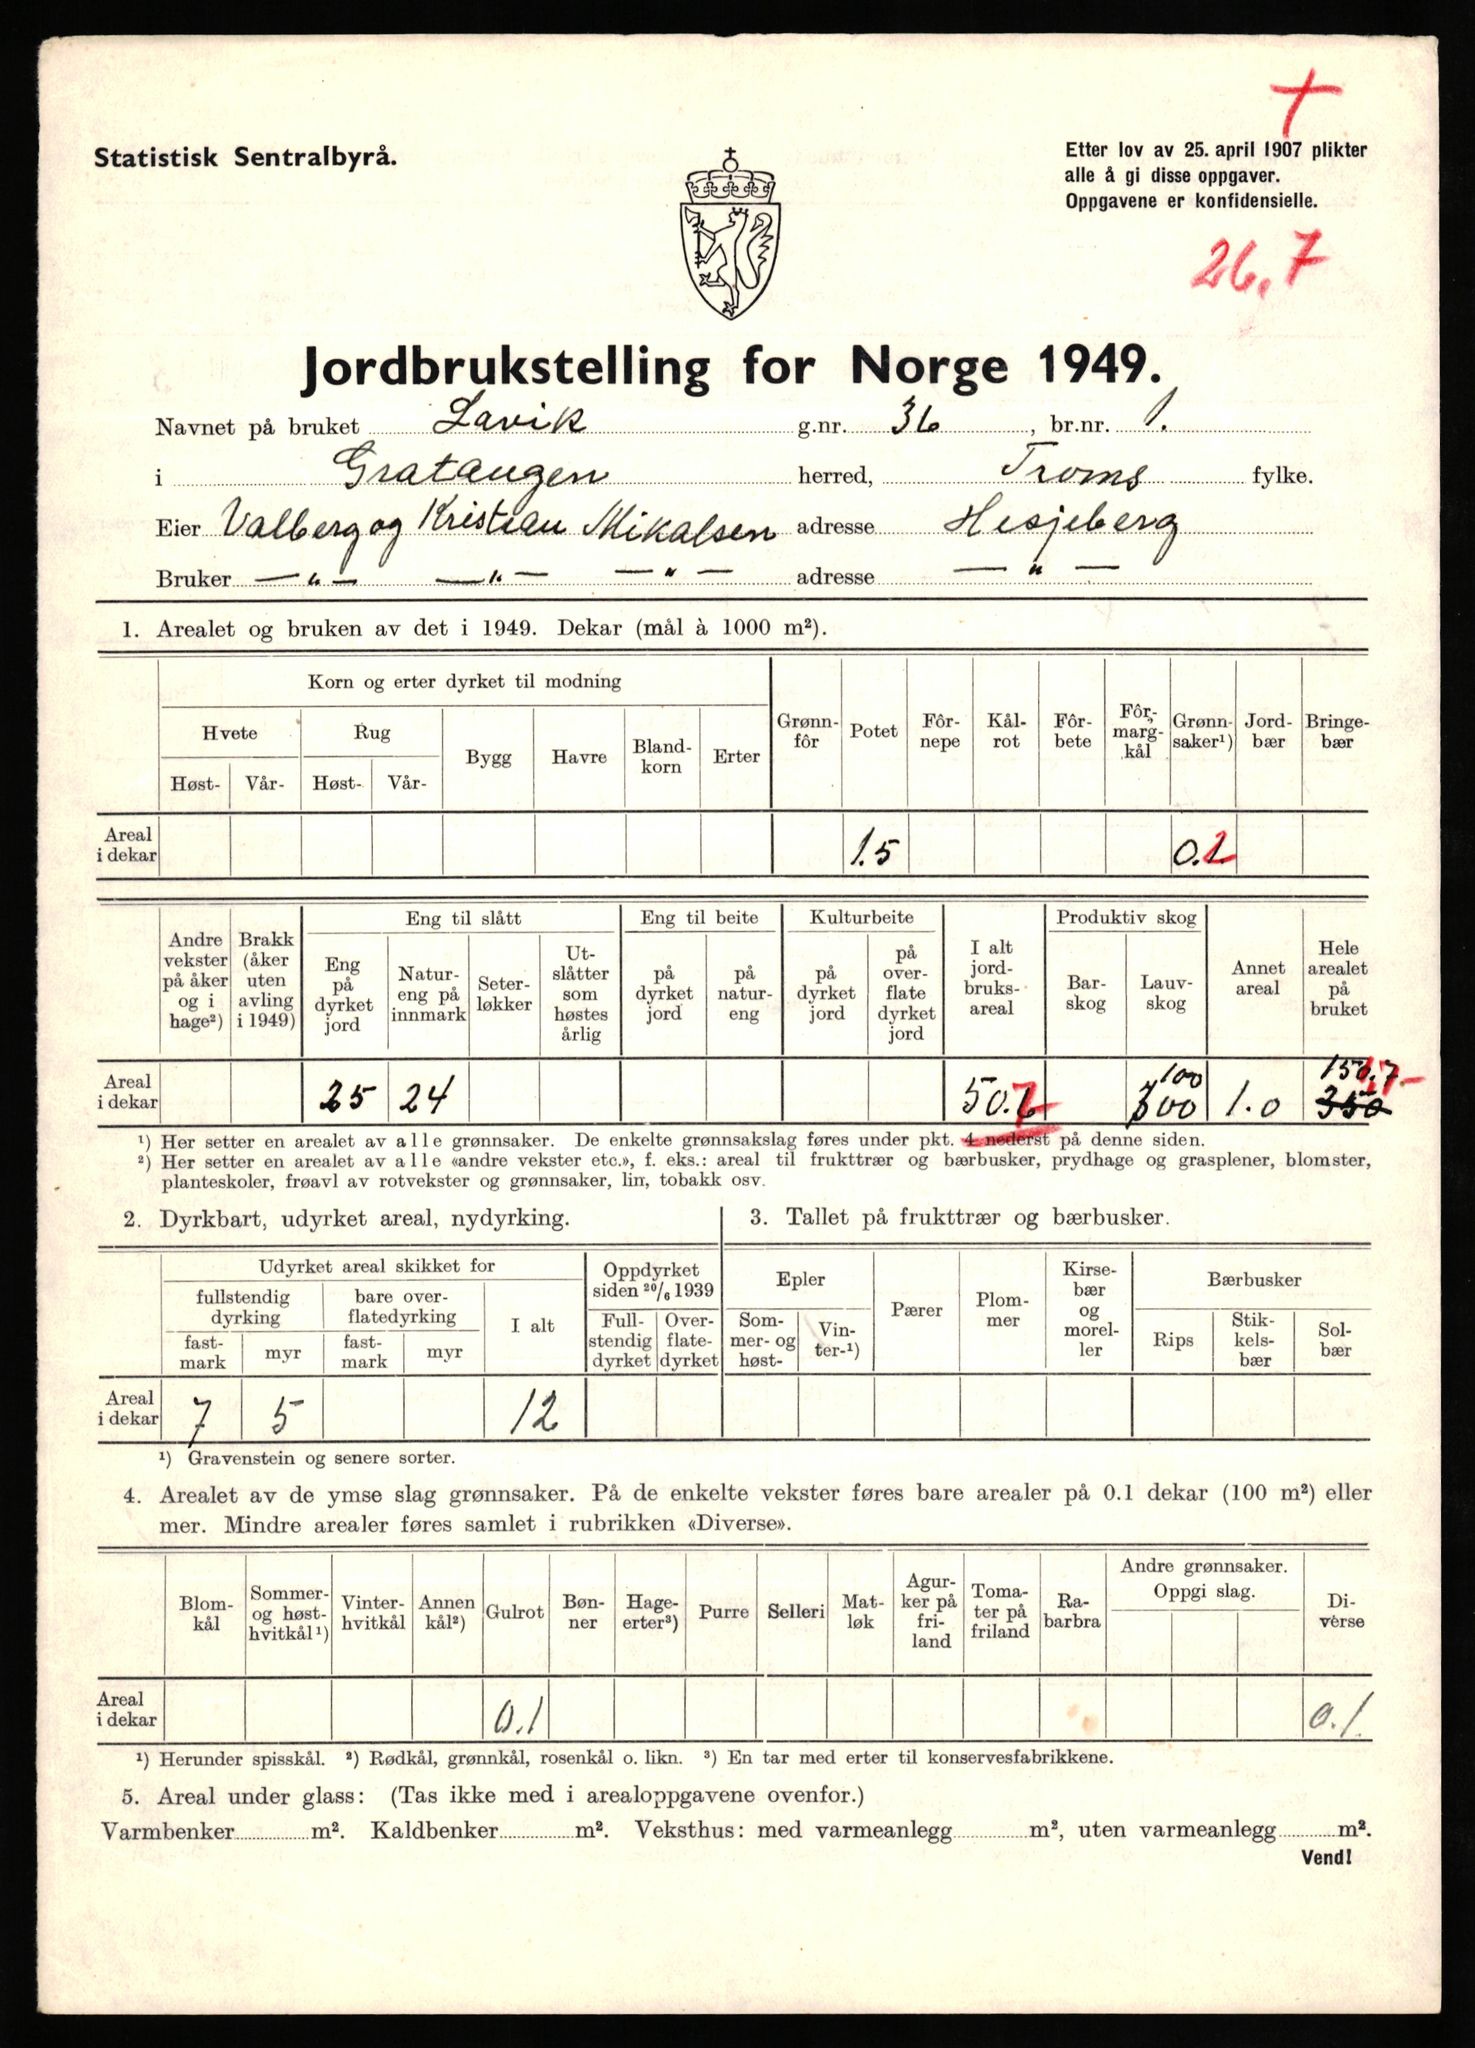 Statistisk Sentralbyrå.
Etter lov av 25. april 1907 plikter
alle å gi disse oppgaver.
Oppgavene er konfidensielle.
26,7
Jordbrukstelling for Norge 1949.
Navnet på bruket Lavik g.nr. 36, br.nr. 1.
i Gratangen herred, Troms fylke.
Eier Valberg og Kristian Mikalsen adresse Hesjeberg
Bruker — " — — " — — " — adresse — " —
1. Arealet og bruken av det i 1949. Dekar (mål à 1000 m²).
Korn og erter dyrket til modning
Hvete Rug Bygg Havre Bland-korn Erter Grønn-fôr Potet Fôr-nepe Kål-rot Fôr-bete Fôr-marg-kål Grønn-saker¹) Jord-bær Bringe-bær
Høst- Vår- Høst- Vår-
Areal i dekar 1.5 0.2
Eng til slått Eng til beite Kulturbeite Produktiv skog
Andre vekster på åker og i hage²) Brakk (åker uten avling i 1949) Eng på dyrket jord Natur-eng på innmark Seter-løkker Ut-slåtter som høstes årlig på dyrket jord på natur-eng på dyrket jord på over-flate dyrket jord I alt jord-bruks-areal Bar-skog Lauv-skog Annet areal Hele arealet på bruket
100 150.7
Areal i dekar 25 24 50.7 300 1.0 350
¹) Her setter en arealet av alle grønnsaker. De enkelte grønnsakslag føres under pkt. 4 nederst på denne siden.
²) Her setter en arealet av alle «andre vekster etc.», f. eks.: areal til frukttrær og bærbusker, prydhage og grasplener, blomster,
planteskoler, frøavl av rotvekster og grønnsaker, lin, tobakk osv.
2. Dyrkbart, udyrket areal, nydyrking.
3. Tallet på frukttrær og bærbusker.
Udyrket areal skikket for Oppdyrket siden 20/6 1939
fullstendig dyrking bare over-flatedyrking I alt Full-stendig dyrket Over-flate-dyrket
fast-mark myr fast-mark myr
Epler Pærer Plom-mer Kirse-bær og morel-ler Bærbusker
Som-mer- og høst- Vin-ter-¹) Rips Stik-kels-bær Sol-bær
Areal i dekar 7 5 12
¹) Gravenstein og senere sorter.
4. Arealet av de ymse slag grønnsaker. På de enkelte vekster føres bare arealer på 0.1 dekar (100 m²) eller
mer. Mindre arealer føres samlet i rubrikken «Diverse».
Blom-kål Sommer- og høst-hvitkål¹) Vinter-hvitkål Annen kål²) Gulrot Bøn-ner Hage-erter³) Purre Selleri Mat-løk Agur-ker på fri-land Toma-ter på friland Ra-barbra Andre grønnsaker. Oppgi slag. Di-verse
Areal i dekar 0.1 0.1.
¹) Herunder spisskål. ²) Rødkål, grønnkål, rosenkål o. likn. ³) En tar med erter til konservesfabrikkene.
5. Areal under glass: (Tas ikke med i arealoppgavene ovenfor.)
Varmbenker m². Kaldbenker m². Veksthus: med varmeanlegg m², uten varmeanlegg m².
Vend!